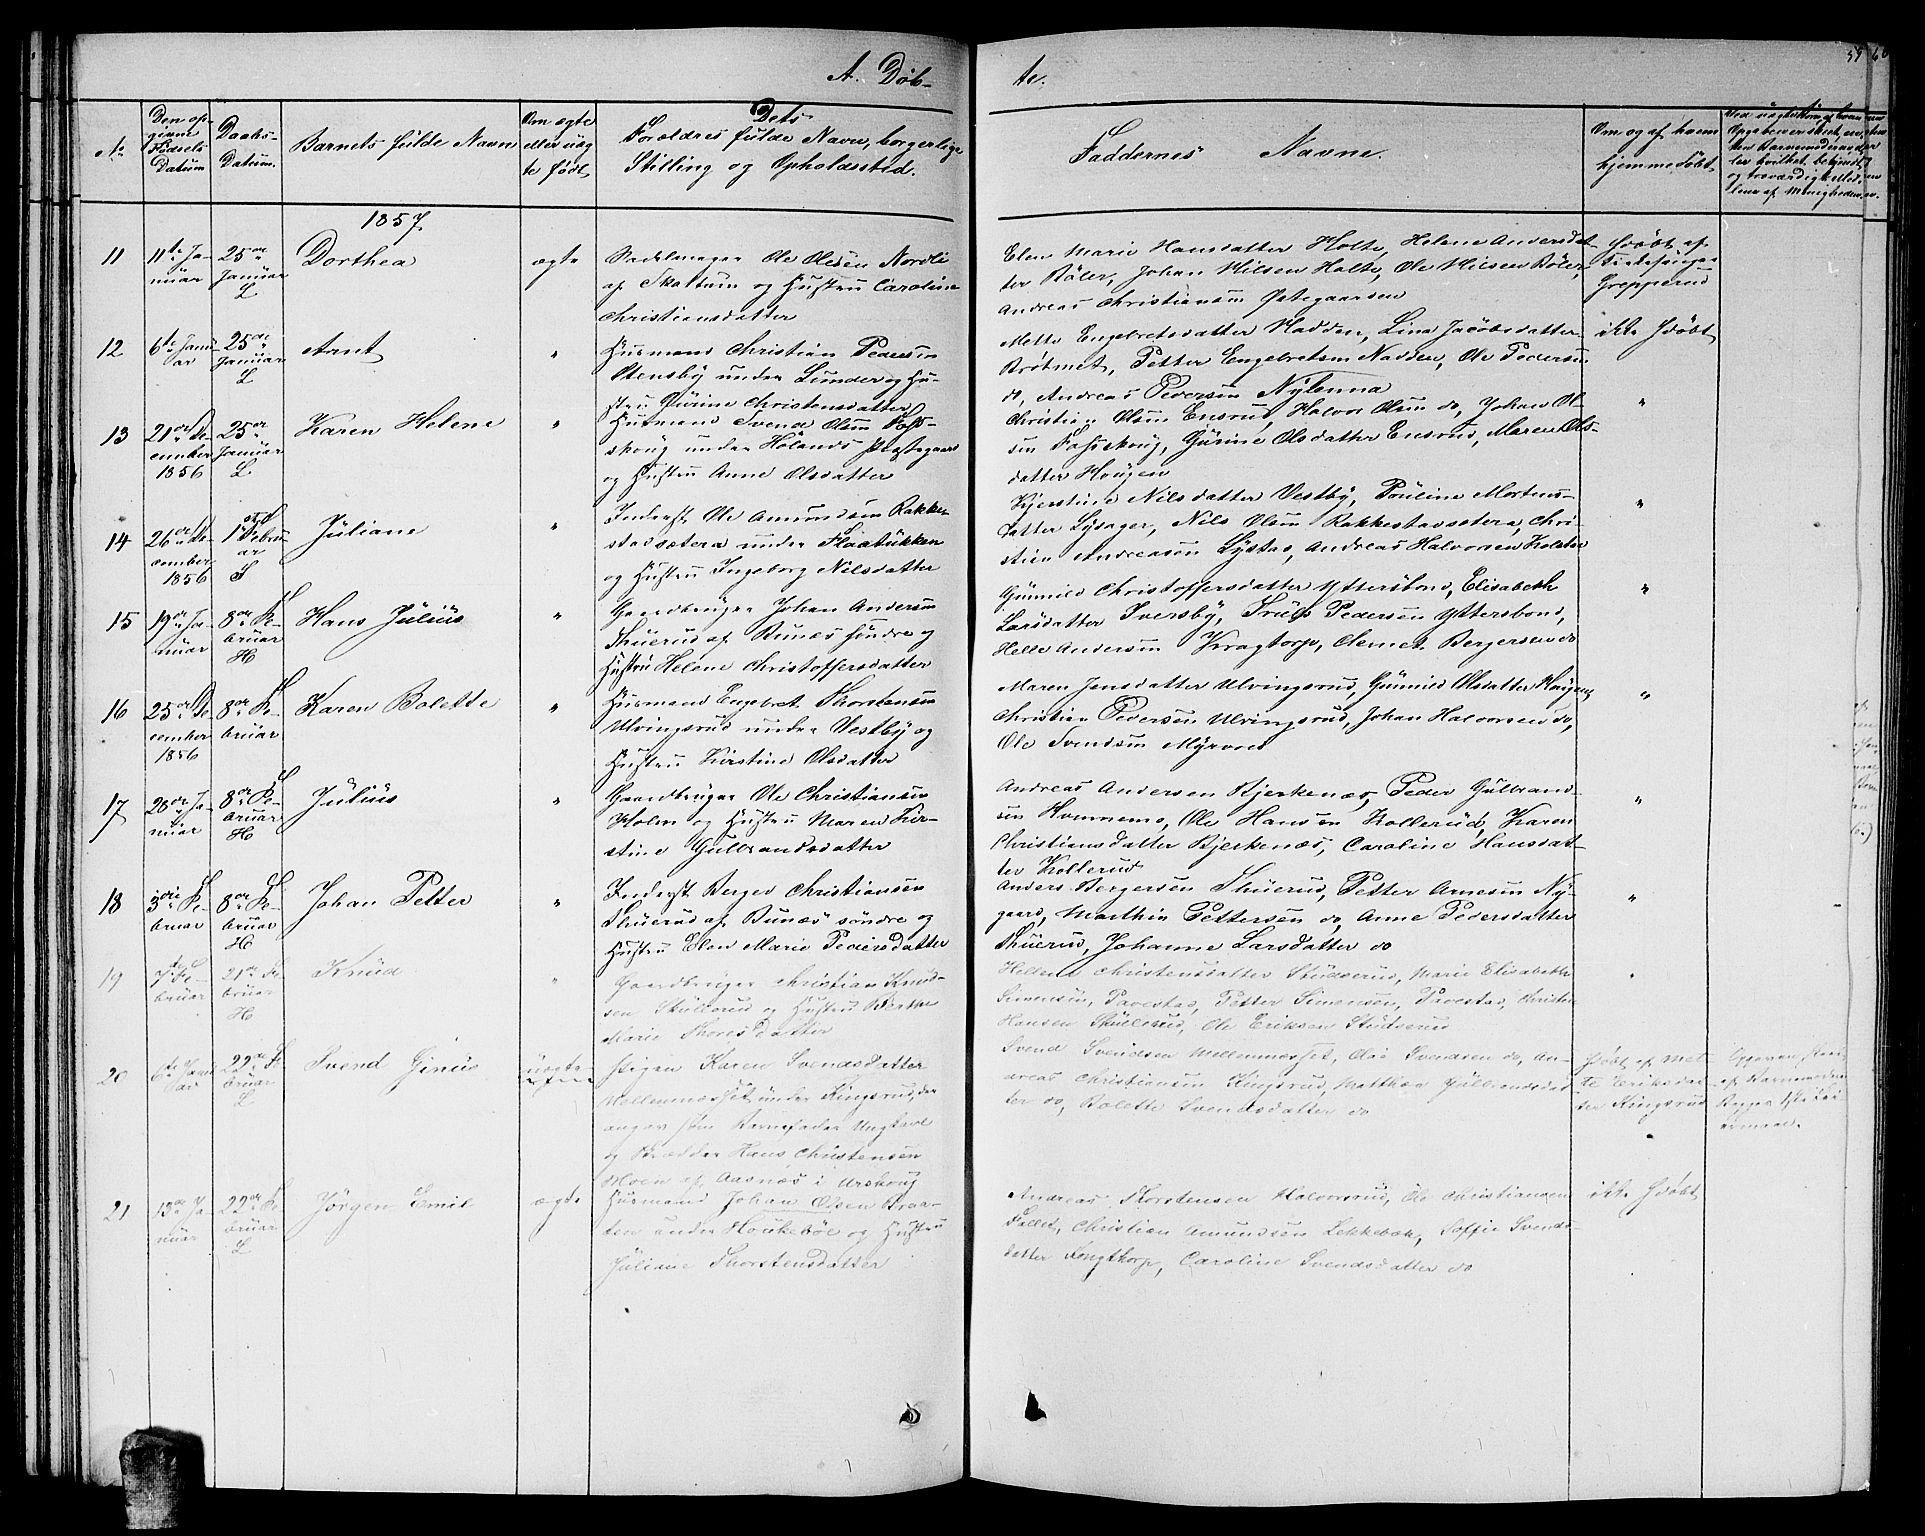 A. Døb-
te.
59
No
Den op-
givne
Fødsels
Datum
Daabs-
Datum.
Barnets fulde Navn
Om ægte
eller uæg
te født
Dets
Forældres fulde Navn, borgerlige
Stilling og Opholdssted.
Faddernes Navne.
Om og af hvem
hjemmedøbt
1857
11
11te Ja-
nuar
25de
Januar
L
Dorthea
ægte
Ole Olsen Nordli
af Skattum og Hustru Caroline
Christiansdatter
Elen Marie Hansdatter Holte, Helene Andersdat-
ter Bøler, Johan Nilsen Holte, Ole Nilsen Bøler,
Andreas Christiansen Østegaarden
hdøbt af
Grepperud
12
6te Janu
ar
25de
Januar
L
Arnt
"
Husmand Christian Pedersen
Stensby under Lunder og Hu-
stru Gurine Christensdatter
Mette Engebretsdatter Nadden, Lina Jacobsdatter
Brøtmet, Petter Engebretsen Nadden, Ole Pedersen
do, Andreas Pedersen Nylenna
ikke hdøbt
13
21de De
cember
1856
25de
Januar
L
Karen Helene
"
Husmand Svend Olsen Foss-
skoug under Hølands Præstegaard
og Hustru Anne Olsdatter
Christian Olsen Ensrud, Halvor Olsen do, Johan Ol-
sen Fossskoug, Gurine Olsdatter Ensrud, Maren Ols-
datter Haugen
"
14
26de De
cember
1856
1ste Febru
ar
S
Juliane
"
Inderst Ole Amundsen Rakke-
stadsætera under Flaatukken
og Hustru Ingeborg Nilsdatter
Kjerstine Nilsdatter Vestby, Pouline Mortens-
datter Lysager, Nils Olsen Rakkestadsætera, Chri-
stian Andreasen Lystad, Andreas Halvorsen Kolstad
"
15
19de Ja-
nuar
8de Fe-
bruar
H
Hans Julius
"
Gaardbruger Johan Andersen
Thuerud af Bunæs søndre og
Hustru Helene Christoffersdatter
Gunnild Christoffersdatter Yttersbond, Elisabeth
Larsdatter Sversby, Truls Pedersen Yttersbond,
Helle Andersen Kragtorp, Clemet Bergersen do
"
16
25de De
cember
1856
8de Fe-
bruar
Karen Bolette
"
Husmand Engebret Thorstensen
Ulvingsrud under Vestby og
Hustru Kirstine Olsdatter
Maren Jensdatter Ulvingsrud, Gunnild Olsdatter Haugen,
Christian Pedersen Ulvingsrud, Johan Halvorsen do,
Ole Svendsen Myrvold
"
17
28de Ja-
nuar
8de Fe-
bruar
H
Julius
"
Gaardbruger Ole Christiansen
Holm og Hustru Maren Kir-
stine Gulbrandsdatter
Andreas Andersen Bjerkenæs, Peder Gulbrand-
sen Hvernemo, Ole Hansen Kollerud, Karen
Christiansdatter Bjerkenæs, Caroline Hansdat-
ter Kollerud
"
18
3die Fe-
bruar
8de Fe-
bruar
H
Johan Petter
"
Inderst Berger Christiansen
Thuerud af Bunæs søndre og
Hustru Elen Marie Pedersdatter
Anders Bergersen Thuerud, Petter Arnesen Ny-
gaard, Marthin Pettersen do, Anne Pedersdatter
Thuerud, Johanne Larsdatter do
"
19
7de Fe-
bruar
21de Fe-
bruar
H
Knud
"
Gaardbruger Christian Knud-
sen Skullerud og Hustru Berthe
Marie Thoresdatter
Hellene Christensdatter Studserud, Marie Elisabeth
Simensen, Tavestad, Petter Simensen, Tavestad, Christen
Hansen Skullerud, Ole Eriksen Studserud
"
20
6te Janu
ar
22de Fe
bruar
L
Svend Ginus
uægte
Pigen Karen Svendsdatter
Mellemnesset under Kingsrud, der
angav som Barnefader Ungkarl
og Skrædder Hans Christensen
Moen af Aasnæs i Urskoug
Svend Svendsen Mellemnesset, Ole Svendsen do, An-
dreas Christiansen Kingsrud, Matthea Gulbrandsdat
ter do, Bolette Svendsdatter do
hdøbt af Met-
te Eriksdat-
ter Kingsrud
21
13de Ja-
nuar
22de Fe
bruar
L
Jørgen Emil
ægte
Husmand Johan Olsen Braa-
ten under Houkebøl og Hustru
Juliane Thorstensdatter
Andreas Thorstensen Halvorsrud, Ole Christiansen
Fallet, Christian Amundsen Lekkebæk, Soffie Svends-
datter Kragthorp, Caroline Svendsdatter do
ikke hdøbt